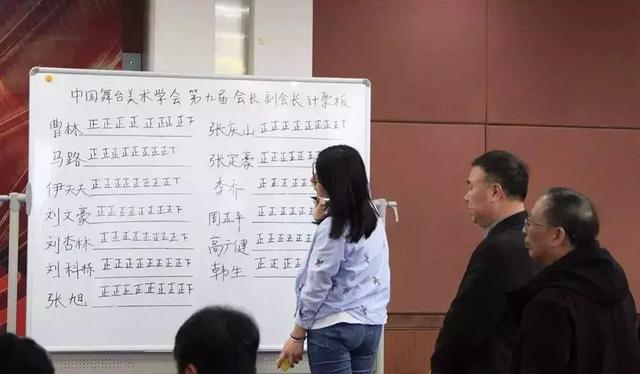 中国舞台美术学会 第九届 会长 副会长 计票板
曹林 正正正正正正正下
马路 正正正正正正正丅
伊天夫 正正正正正正正丅
刘文豪 正正正正正正正下
刘杏林 正正正正正正正下
刘科栋 正正正正正正正下
张旭 正正正正正正正下
张庆山 正正正正正正正丅
张定豪 正正正正正
李齐 正正正正
周正平 正正正正
高广健 正正正正
韩生 正正正